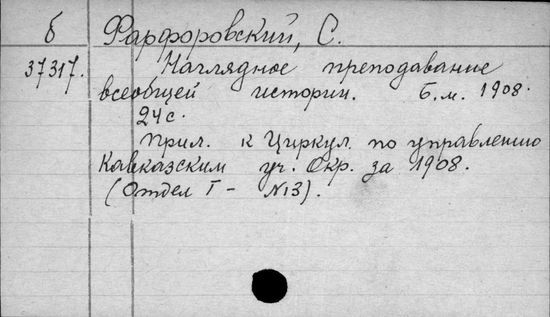 б Фарфоровский, С.
37317. Наглядное преподавание
всеобщей истории. Б.м. 1908.
24с.
Прил. к Циркул. по управлению
Кавказским уч. Окр. за 1908.
(Отдел I - №13).